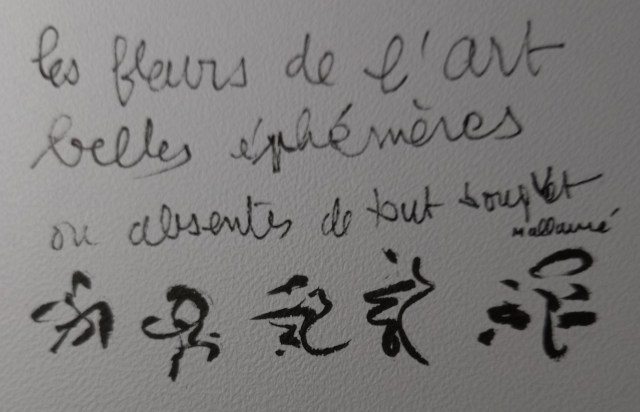 les fleurs de l'art
belles éphémères
ou absentes de tout bouquet
Mallarmé